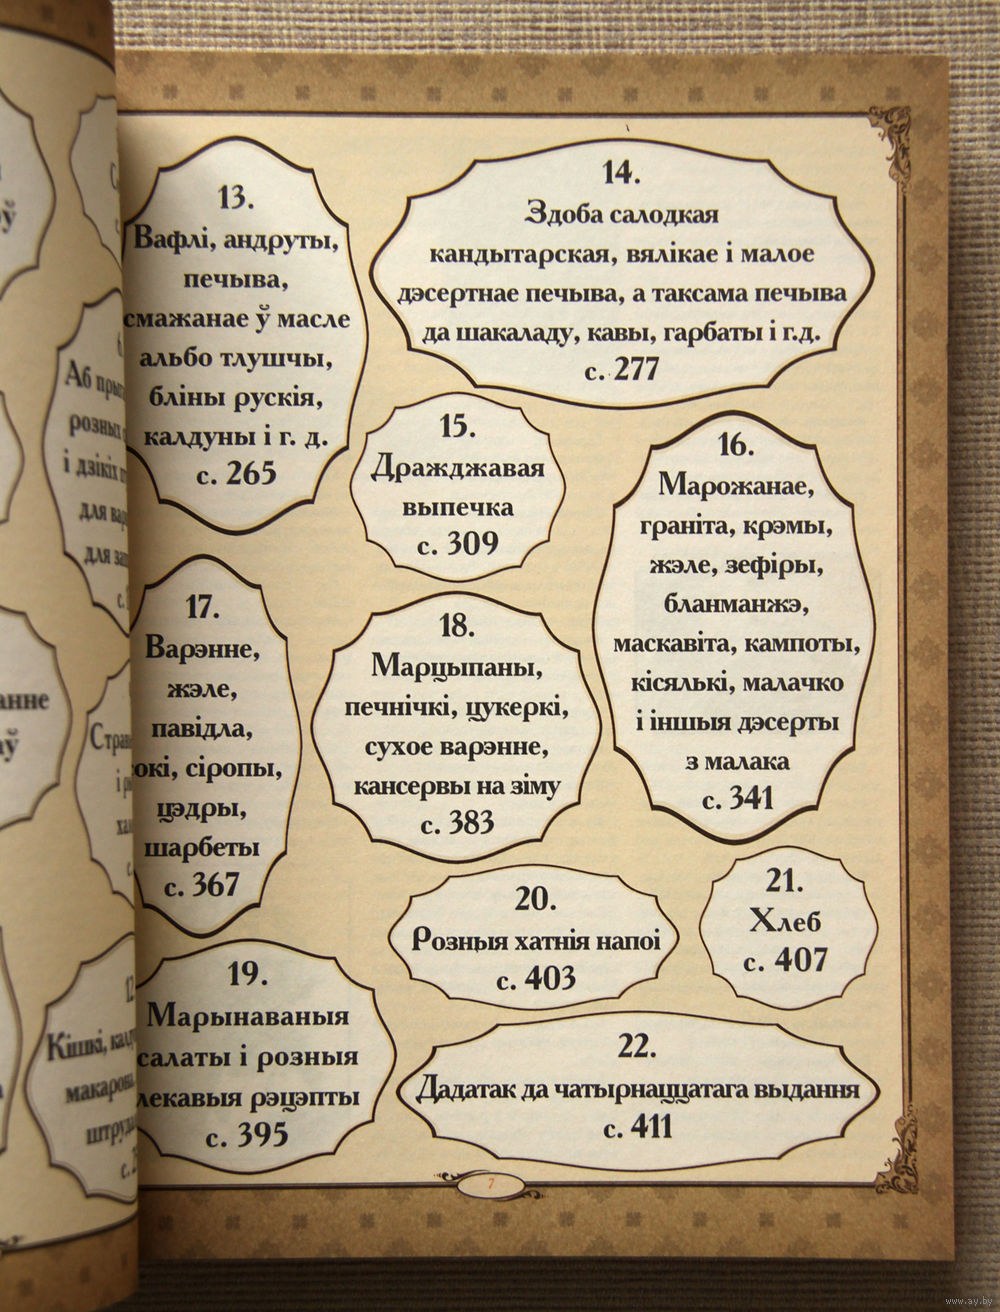 13.
Вафлі, андруты,
печыва,
смажанае ў масле
альбо тлушчы,
бліны рускія,
калдуны і г. д.
с. 265
14.
Здоба салодкая
кандытарская, вялікае і малое
дэсертнае печыва, а таксама печыва
да шакаладу, кавы, гарбаты і г.д.
с. 277
15.
Дражджавая
выпечка
с. 309
16.
Марожанае,
граніта, крэмы,
жэле, зефіры,
бланманжэ,
маскавіта, кампоты,
кісялькі, малачко
і іншыя дэсерты
з малака
с. 341
17.
Варэнне,
жэле,
павідла,
сіропы,
цэдры,
шарбеты
с. 367
18.
Марцыпаны,
печнічкі, цукеркі,
сухое варэнне,
кансервы на зіму
с. 383
19.
Марынаваныя
салаты і розныя
рэцэпты
с. 395
20.
Розныя хатнія напоі
с. 403
21.
Хлеб
с. 407
22.
Дадатак да чатырнаццатага выдання
с. 411
7
Аб
розных
і дзікіх
для
для
12.
Кішкі,
www.ay.by